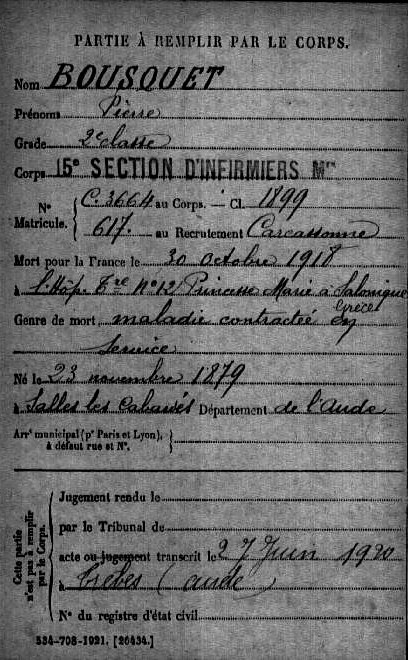 PARTIE À REMPLIR PAR LE CORPS.
Nom BOUSQUET
Prénoms Pierre
Grade 2e classe
Corps 15e SECTION D'INFIRMIERS Mres
N° Matricule. { C. 3664 au Corps. — Cl. 1899
617. au Recrutement Carcassonne
Mort pour la France le 30 octobre 1918
à l'Hôp. Tre N° 12 Princesse Marie à Salonique
Grèce
Genre de mort maladie contractée en
service
Né le 23 novembre 1879
à Salles les Cabarés Département de l'Aude
Arrt municipal (pr Paris et Lyon), à défaut rue et N°. }
Cette partie n'est pas à remplir par le Corps. {
Jugement rendu le
par le Tribunal de
acte ou jugement transcrit le 27 Juin 1920
à Trèbes (Aude)
N° du registre d'état civil
534-708-1921. [26434.]